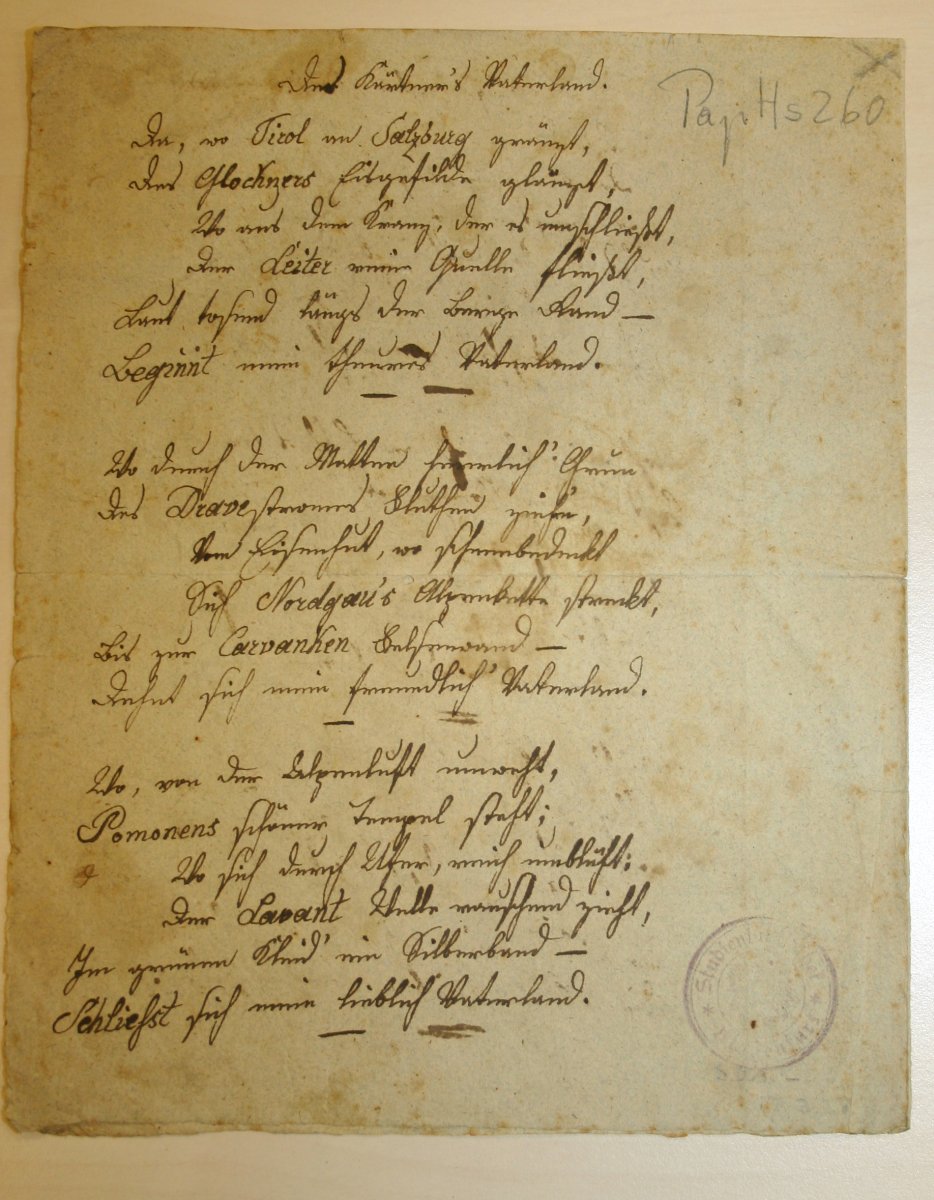 Des Kärtner's Vaterland.
Pap. Hs 260
Da, wo Tirol an Salzburg gränzt,
Des Glockners Eisgefilde glänzt,
Wo aus dem Kranz, der es umschließt,
Der Leiter reine Quelle fließt,
Laut tosend längs der Berge Rand —
Beginnt mein theures Vaterland.
Wo durch der Matten herrlich' Grün
Des Dravestromes Fluthen ziehn,
Vom Eisenhut, wo schneebedeckt
Sich Nordgau's Alpenkette streckt,
Bis zur Carvanken Felsenwand —
Dehnt sich mein freundlich' Vaterland.
Wo, von der Alpenluft umweht,
Pomonens schöner Tempel steht;
Wo sich durch Ufer, reich umblüht;
Der Lavant Welle rauschend zieht,
Im grünen Kleid' ein Silberband —
Schliesst sich mein lieblich Vaterland.